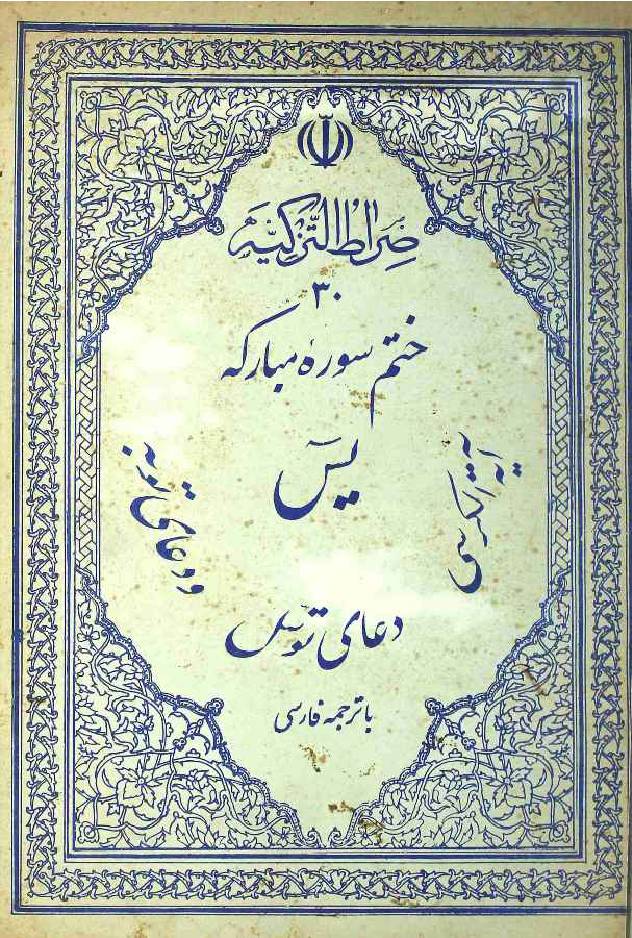 صِراطُ التَّزکیَه
۳۰
ختم سوره مبارکه
یسٓ
آیة الکرسی
و دعای توبه
دعای توسل
با ترجمه فارسی